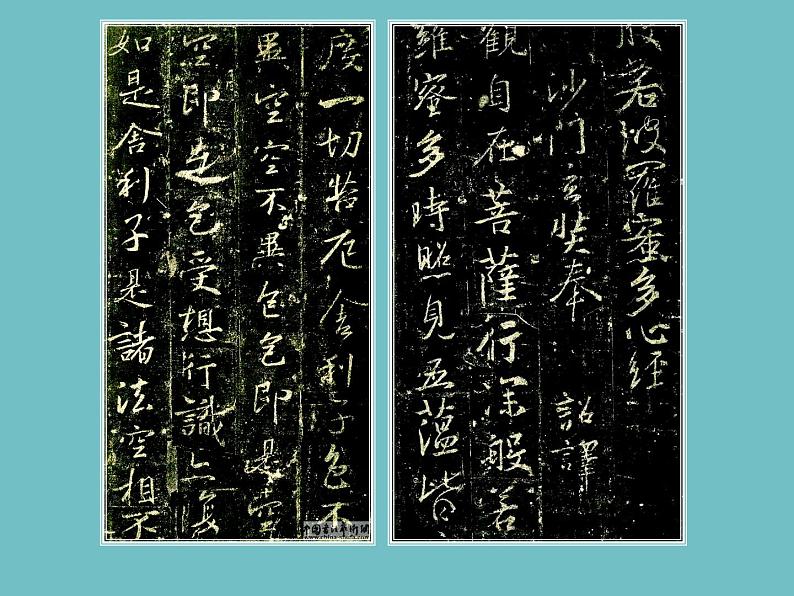 般若波羅蜜多心經
沙門玄奘奉 詔譯
觀自在菩薩行深般若
羅蜜多時照見五蘊皆
度一切苦厄舍利子色不
異空空不異色色即是空
空即是色受想行識亦復
如是舍利子是諸法空相不
www.china-shufa.com